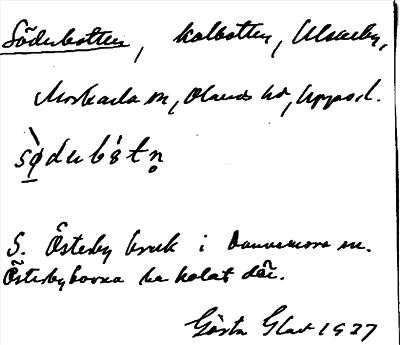 Söderbotten, kolbotten, Ulvarby,
Morkarla sn, Olands hd, Uppsol.
sø̀derbȯ́tn̥
S. Österby bruk i Dannemora sn.
Österbyborna ha kolat där.
Gösta Glad 1937